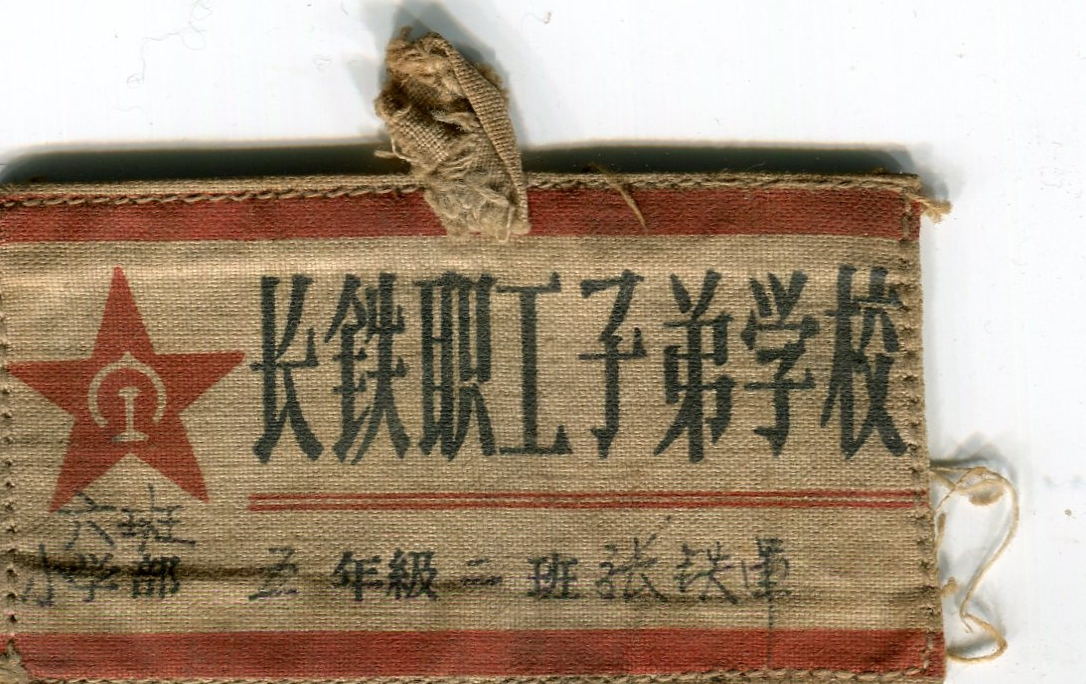 长铁职工子弟学校
六班
小学部 五年級二班张铁軍